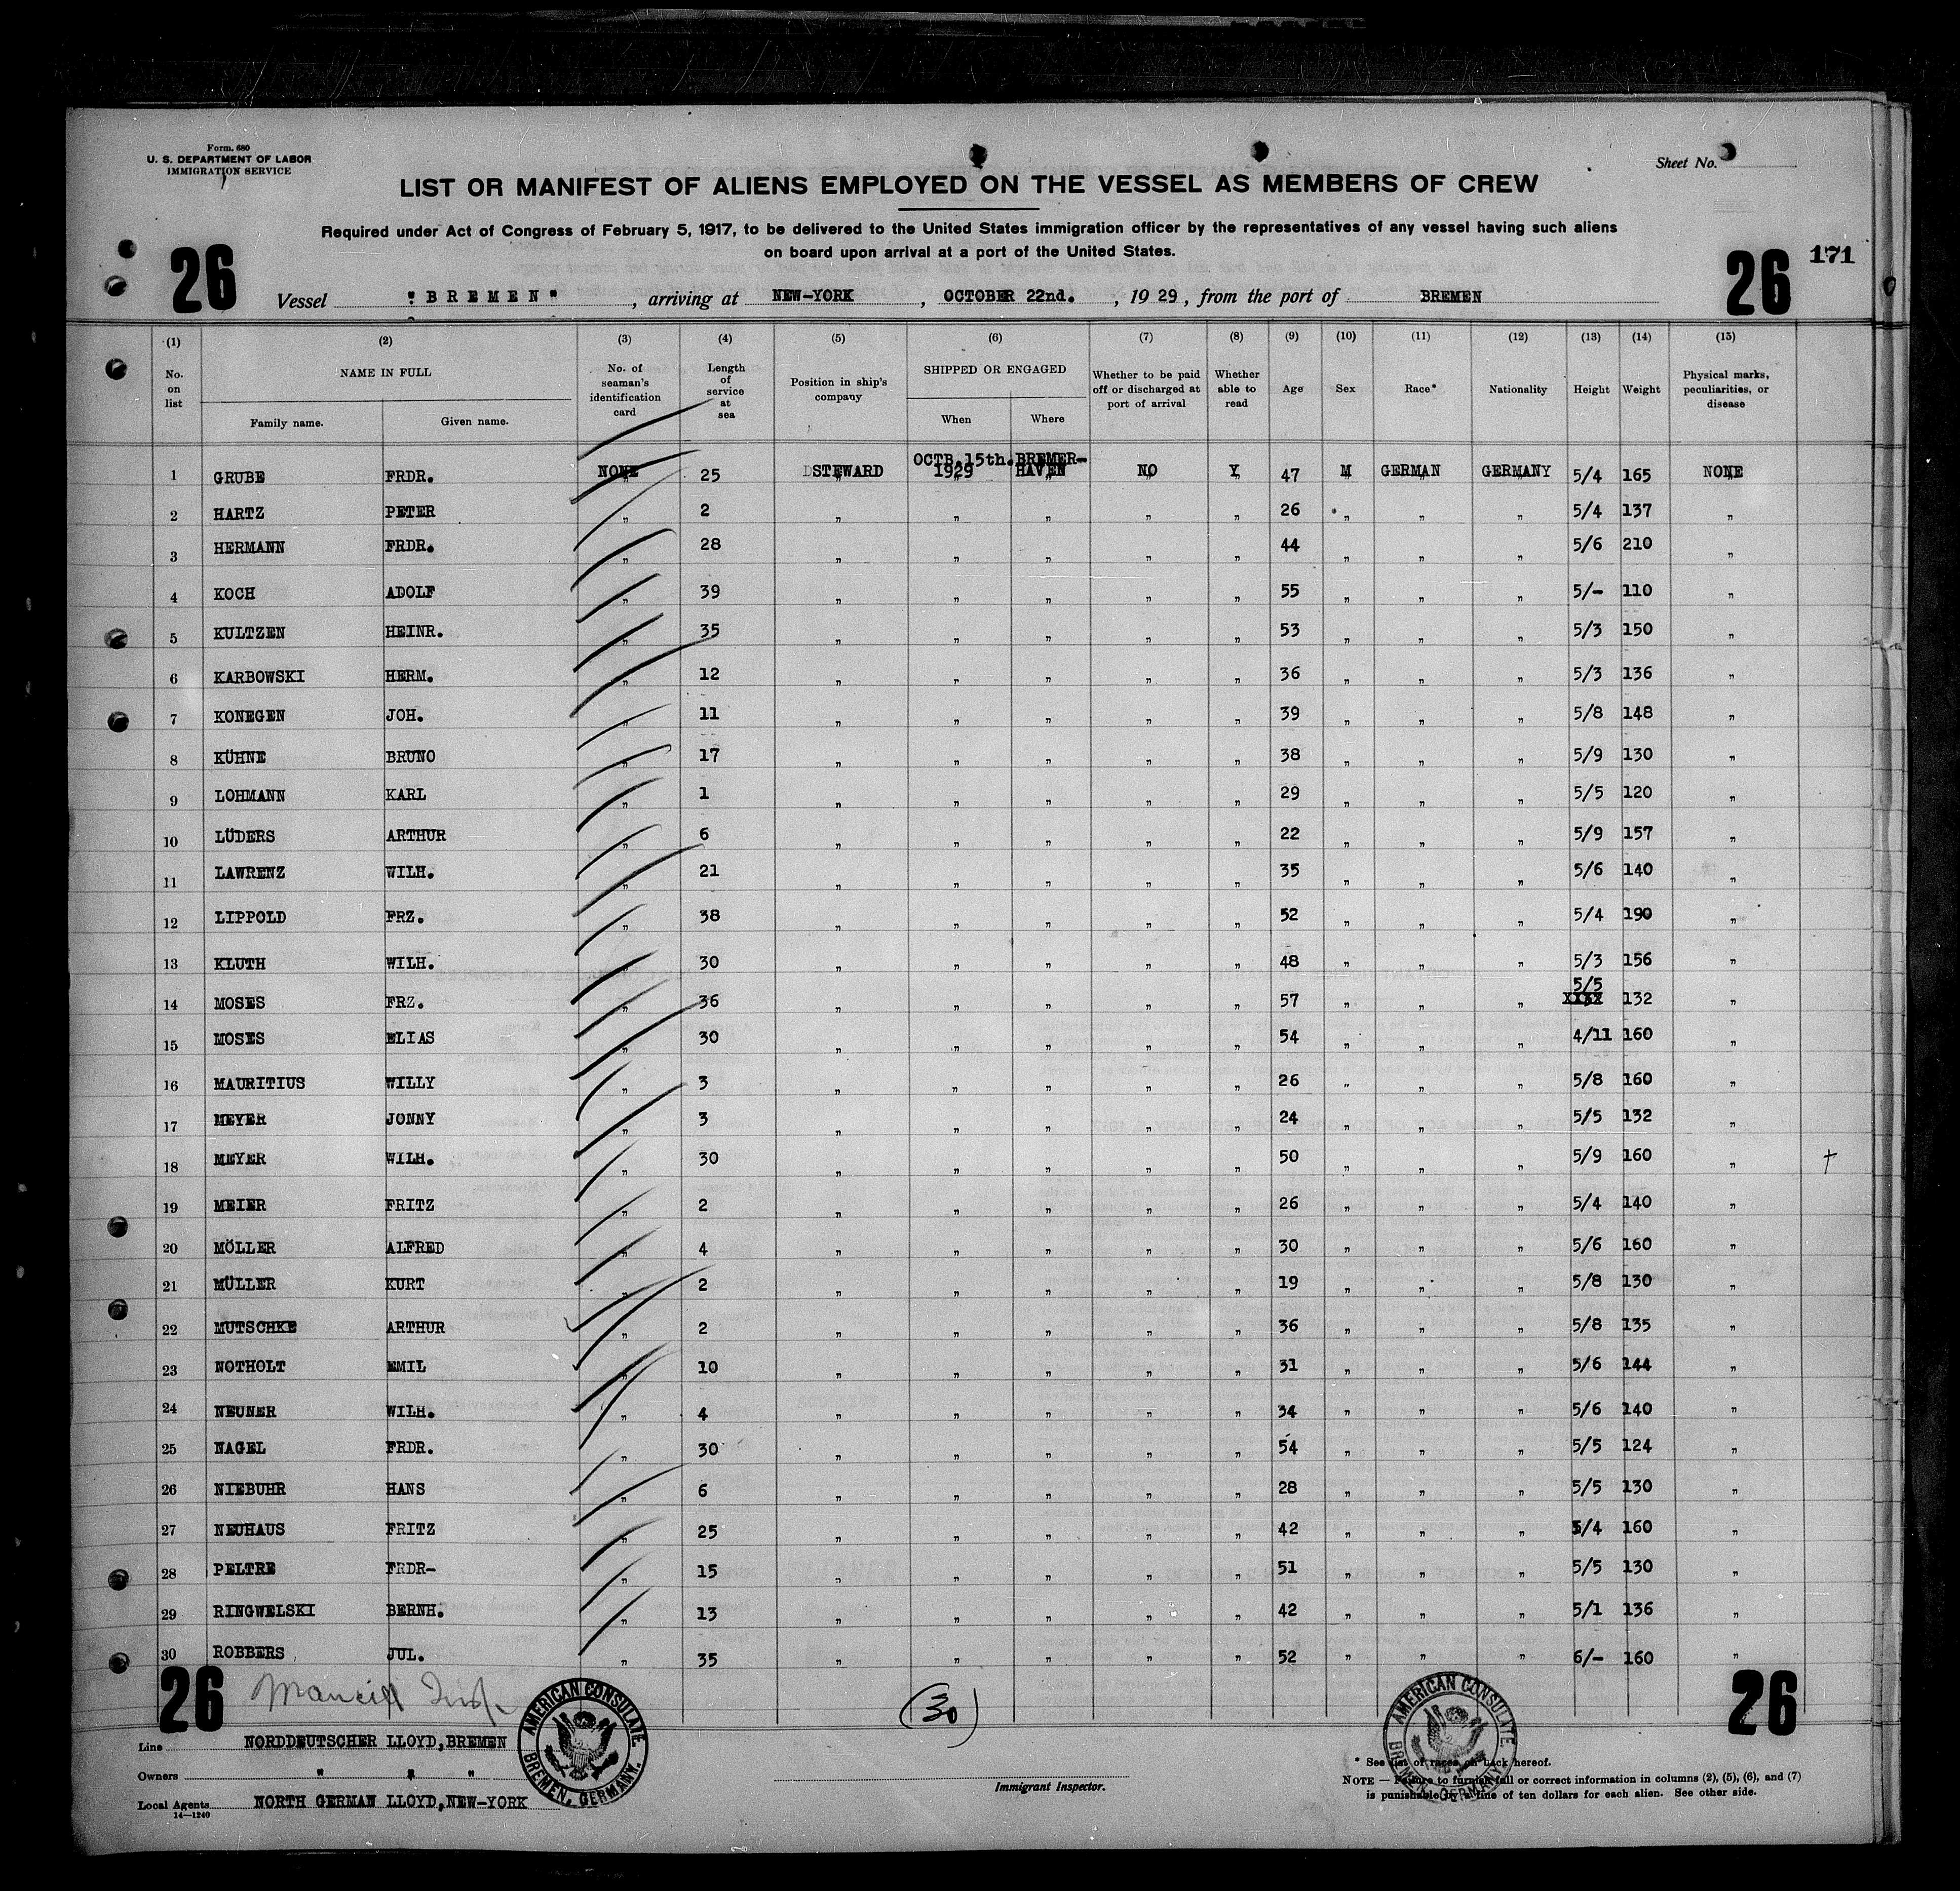 Form. 680
U. S. DEPARTMENT OF LABOR
IMMIGRATION SERVICE
Sheet No.
LIST OR MANIFEST OF ALIENS EMPLOYED ON THE VESSEL AS MEMBERS OF CREW
Required under Act of Congress of February 5, 1917, to be delivered to the United States immigration officer by the representatives of any vessel having such aliens
on board upon arrival at a port of the United States.
26 26 171
Vessel "BREMEN", arriving at NEW-YORK, OCTOBER 22nd., 1929, from the port of BREMEN
(1) (2) (3) (4) (5) (6) (7) (8) (9) (10) (11) (12) (13) (14) (15)
No. on list NAME IN FULL Family name. Given name. No. of seaman's identification card Length of service at sea Position in ship's company SHIPPED OR ENGAGED When Where Whether to be paid off or discharged at port of arrival Whether able to read Age Sex Race* Nationality Height Weight Physical marks, peculiarities, or disease
1 GRUBE FRDR. NONE 25 DSTEWARD OCTB.15th. 1929 BREMER-HAVEN NO Y 47 M GERMAN GERMANY 5/4 165 NONE
2 HARTZ PETER " 2 " " " " " 26 " " " 5/4 137 "
3 HERMANN FRDR. " 28 " " " " " 44 " " " 5/6 210 "
4 KOCH ADOLF " 39 " " " " " 55 " " " 5/- 110 "
5 KULTZEN HEINR. " 35 " " " " " 53 " " " 5/3 150 "
6 KARBOWSKI HERM. " 12 " " " " " 36 " " " 5/3 136 "
7 KONEGEN JOH. " 11 " " " " " 39 " " " 5/8 148 "
8 KÜHNE BRUNO " 17 " " " " " 38 " " " 5/9 130 "
9 LOHMANN KARL " 1 " " " " " 29 " " " 5/5 120 "
10 LÜDERS ARTHUR " 6 " " " " " 22 " " " 5/9 157 "
11 LAWRENZ WILH. " 21 " " " " " 35 " " " 5/6 140 "
12 LIPPOLD FRZ. " 38 " " " " " 52 " " " 5/4 190 "
13 KLUTH WILH. " 30 " " " " " 48 " " " 5/3 156 "
14 MOSES FRZ. " 36 " " " " " 57 " " " 5/5 132 "
15 MOSES ELIAS " 30 " " " " " 54 " " " 4/11 160 "
16 MAURITIUS WILLY " 3 " " " " " 26 " " " 5/8 160 "
17 MEYER JONNY " 3 " " " " " 24 " " " 5/5 132 "
18 MEYER WILH. " 30 " " " " " 50 " " " 5/9 160 " †
19 MEIER FRITZ " 2 " " " " " 26 " " " 5/4 140 "
20 MÖLLER ALFRED " 4 " " " " " 30 " " " 5/6 160 "
21 MÜLLER KURT " 2 " " " " " 19 " " " 5/8 130 "
22 MUTSCHKE ARTHUR " 2 " " " " " 36 " " " 5/8 135 "
23 NOTHOLT EMIL " 10 " " " " " 31 " " " 5/6 144 "
24 NEUNER WILH. " 4 " " " " " 34 " " " 5/6 140 "
25 NAGEL FRDR. " 30 " " " " " 54 " " " 5/5 124 "
26 NIEBUHR HANS " 6 " " " " " 28 " " " 5/5 130 "
27 NEUHAUS FRITZ " 25 " " " " " 42 " " " 5/4 160 "
28 PELTRE FRDR- " 15 " " " " " 51 " " " 5/5 130 "
29 RINGWELSKI BERNH. " 13 " " " " " 42 " " " 5/1 136 "
30 ROBBERS JUL. " 35 " " " " " 52 " " " 6/- 160 "
26 (30) 26
Line NORDDEUTSCHER LLOYD,BREMEN
Owners " " "
Local Agents NORTH GERMAN LLOYD,NEW-YORK
14—1240
AMERICAN CONSULATE BREMEN, GERMANY.
Immigrant Inspector.
AMERICAN CONSULATE BREMEN, GERMANY.
* See list of races on back hereof.
NOTE — Failure to furnish full or correct information in columns (2), (5), (6), and (7)
is punishable by a fine of ten dollars for each alien. See other side.